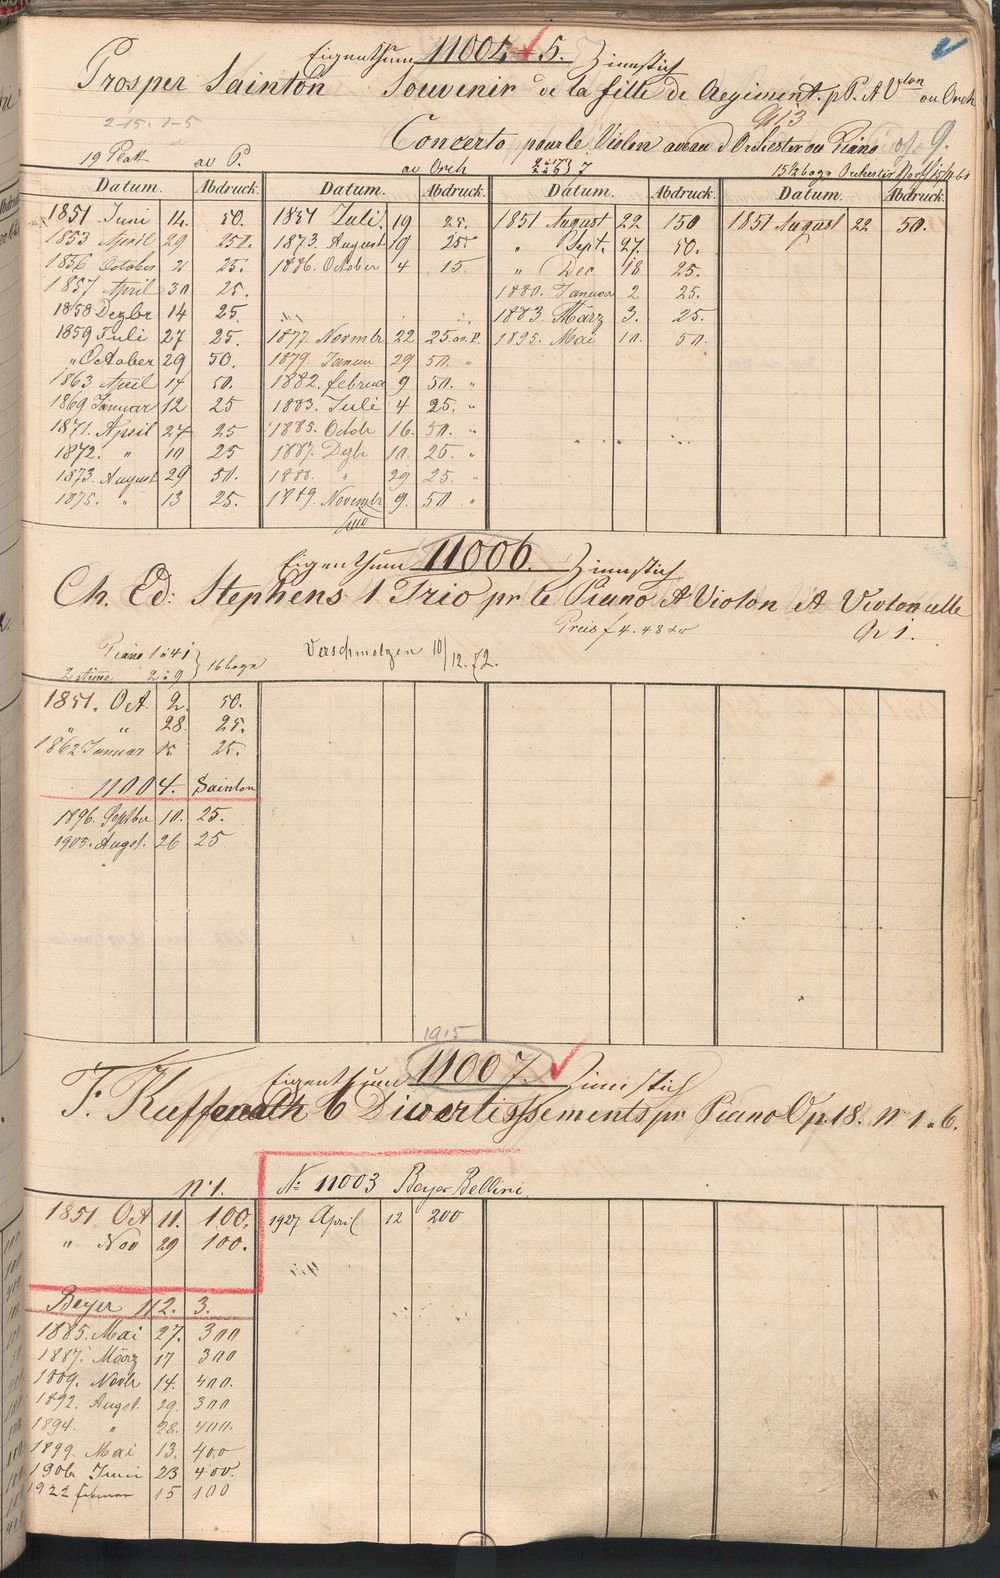 Eigenthum 11004 5. Zinnstich
Prosper Sainton Souvenir de la fille de Regiment. p P. et Vlon ou Orch
2-15. 1-5
Concerto pour le Violon avec d'Orchester ou Piano op 9.
19 Platt av P. av Orch 15½ bogn Orchester
Datum. Abdruck. Datum. Abdruck. Datum. Abdruck. Datum. Abdruck.
1851 Juni 14. 50. 1851 Juli 19 25. 1851 August 22 150 1851 August 22 50.
1853 April 29 25. 1873. August 19 25 " Sept. 27. 50.
1856 October 2 25. 1886. October 4 15. " Dec 18 25.
1857 April 30 25. 1880. Januar 2 25.
1858 Dezbr 14 25. 1883. März 3. 25.
1859 Juli 27 25. 1877. Novembr 22 25 1895. Mai 10. 50.
" October 29 50. 1879. Janua 29 50. "
1863 April 14 50. 1882. februa 9 50. "
1869 Januar 12 25 1883. Juli 4 25. "
1871. April 27 25 1885. Octob 16. 50. "
1872. " 10 25 1887. Dzb 10. 25. "
1873. August 29 50. 1888. " 29 25. "
1875. " 13 25. 1889. Novembr 9. 50 "
Eigenthum 11006. Zinnstich
Ch. Ed: Stephens 1 Trio pr le Piano et Violon et Violoncelle
Preis f 4. 48 Op 1.
Piano 1 à 41
2 stime 2 à 9 16 bogn
Verschmolzen 10/12. 72.
1851. Oct 2. 50.
" " 28. 25.
1862 Januar 15 25.
11004. Sainton
1896. Septber 10. 25.
1905. Augst. 26 25
1915
Eigenthum 11007. Zinnstich
F. Kufferath 6 Divertissements pr Piano Op. 18. No 1 à 6.
No 1. No 11003 Beyer Bellini
1851. Oct 11. 100. 1927 April 12 200
" Nov 29 100.
Beyer 112. 3.
1885. Mai 27. 300
1887. März 17 300
1889. Novb 14. 400.
1892. Augst. 29. 300
1894. " 28. 400.
1899. Mai 13. 400
1906 Juni 23 400.
1922 februar 15 100